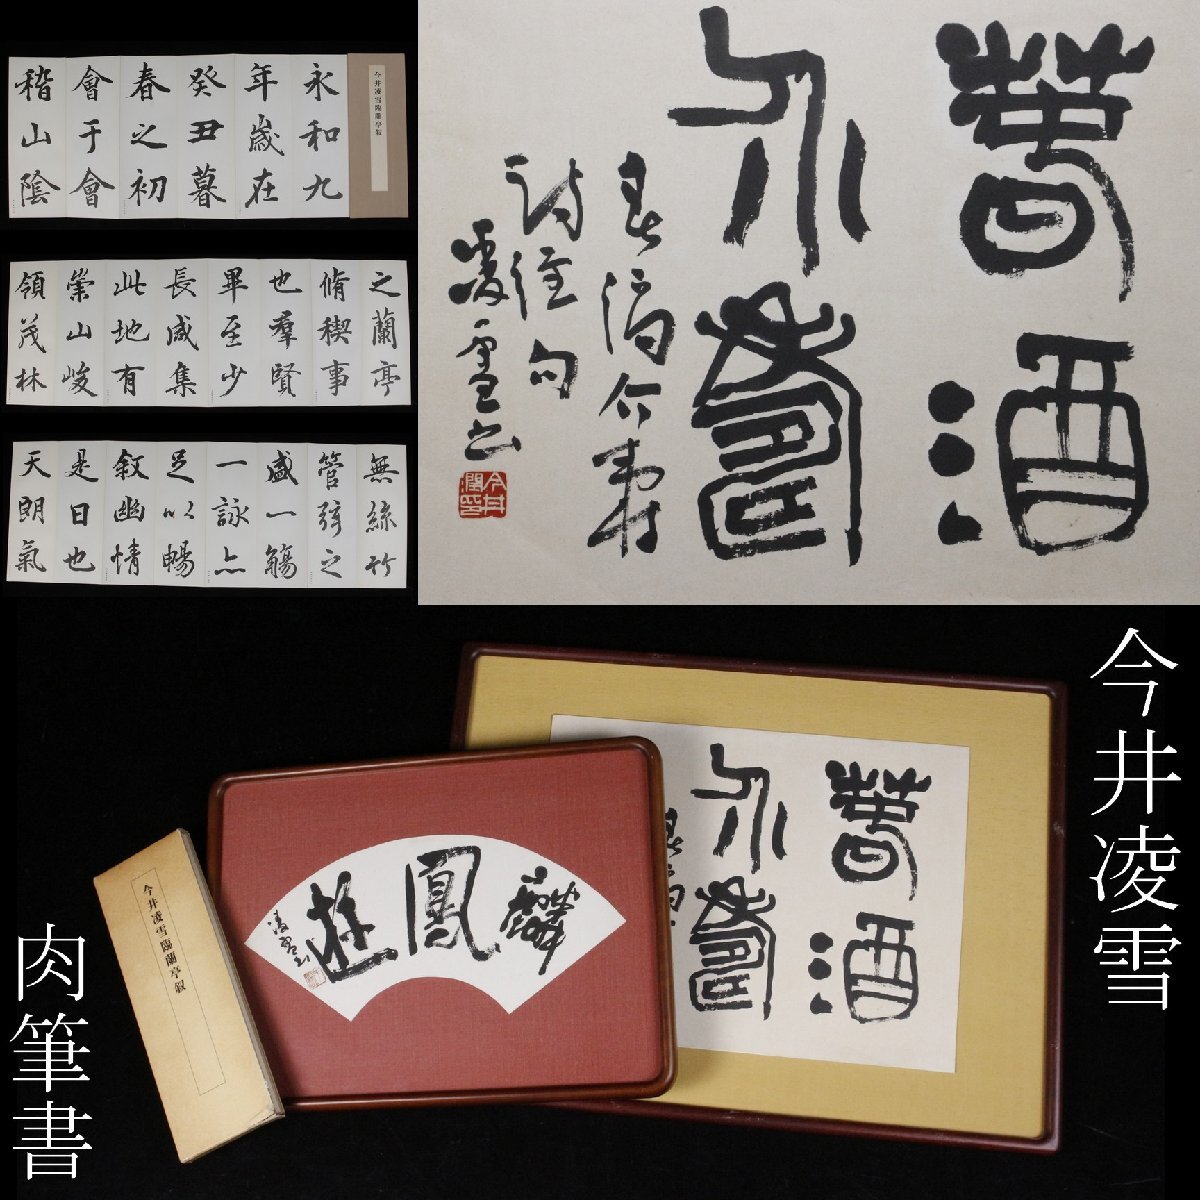 今井凌雪臨蘭亭叙
永和九
年歳在
癸丑暮
春之初
會于會
稽山陰
之蘭亭
脩稧事
也羣賢
畢至少
長咸集
此地有
崇山峻
領茂林
無絲竹
管弦之
盛一觴
一詠亦
足以暢
叙幽情
是日也
天朗氣
萅酒
介壽
春酒介壽
詩経句
凌雪書
今井潤印
今井凌雪
肉筆書
萅酒
介壽
麟鳳遊
凌雪書
今井凌雪臨蘭亭叙